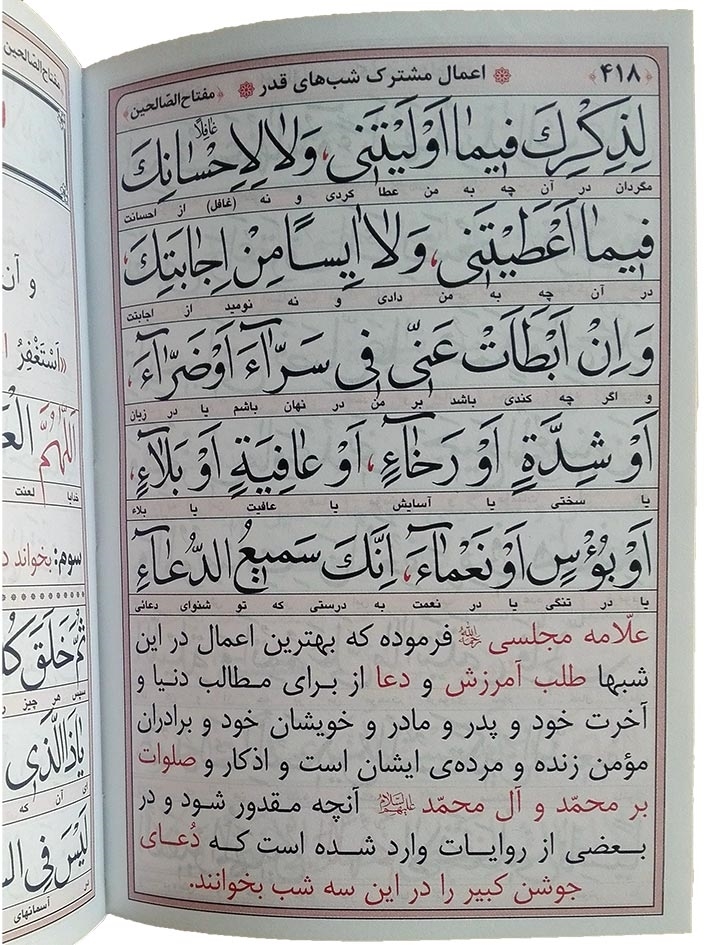 ﴿۴۱۸﴾ اعمال مشترک شب‌های قدر ﴿مفتاح‌الصّالحین﴾
لِذِكْرِكَ فيمٰا اَوْلَيْتَنى، وَلاٰ لِاِحْسٰانِكَ
غٰافِلًا
مگردان در آن چه به من عطا کردی و نه (غافل) از احسانت
فيمٰا اَعْطَيْتَنى، وَلاٰ اٰيِسًا مِنْ اِجٰابَتِكَ،
در آن چه به من دادی و نه نومید از اجابتت
وَ اِنْ اَبْطَاَتْ عَنّى فى سَرّٰآءَ اَوْ ضَرّٰآءَ،
و اگر چه کندی باشد بر من در نهان باشم یا در زیان
اَوْ شِدَّةٍ اَوْ رَخٰآءٍ، اَوْ عٰافِيَةٍ اَوْ بَلاٰءٍ،
یا سختی یا آسایش یا عافیت یا بلاء
اَوْ بُؤْسٍ اَوْ نَعْمٰآءَ، اِنَّكَ سَميعُ الدُّعٰآءِ
یا در تنگی یا در نعمت به درستی که تو شنوای دعائی
علّامه مجلسی رحمه‌الله فرموده که بهترین اعمال در این
شبها طلب آمرزش و دعا از برای مطالب دنیا و
آخرت خود و پدر و مادر و خویشان خود و برادران
مؤمن زنده و مرده‌ی ایشان است و اذکار و صلوات
بر محمّد و آل محمّد علیهم‌السلام آنچه مقدور شود و در
بعضی از روایات وارد شده است که دُعای
جوشن کبیر را در این سه شب بخوانند.
مفتاح‌الصّالحین
و آن
«اَسْتَغْفِرُ
اَللّٰهُمَّ
خدایا لعنت
سوم: بخواند
ثُمَّ خَلَقَ
سپس هر چیز
يٰا ذَا الَّذى
ای آن که
لَيْسَ فِى
آسمانهای